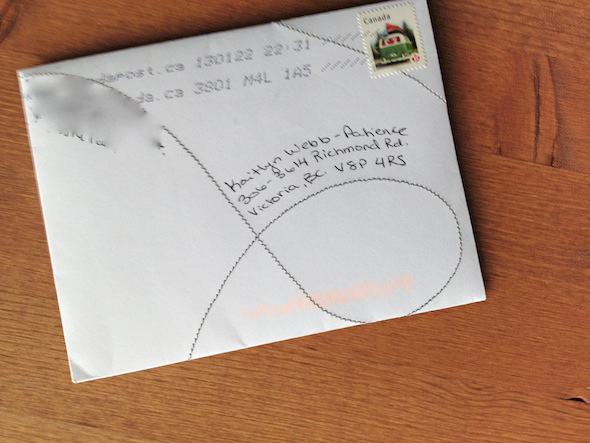 Canada
dapost.ca 130122 22:31
da.ca 3801 M4L 1A5
Kaitlyn Webb-Patience
306-3614 Richmond Rd.
Victoria, BC. V8P 4R5